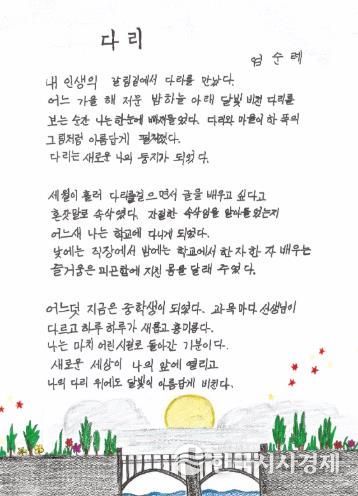 다리
엄순례
내 인생의 갈림길에서 다리를 만났다.
어느 가을 해 저문 밤하늘 아래 달빛 비친 다리를
보는 순간 나는 한눈에 빠져들었다. 다리와 마을이 한 폭의
그림처럼 아름답게 펼쳐졌다.
다리는 새로운 나의 둥지가 되었다.
세월이 흘러 다리를 걸으면서 글을 배우고 싶다고
혼잣말로 속삭였다. 간절한 속삭임을 알아들었는지
어느새 나는 학교에 다니게 되었다.
낮에는 직장에서 밤에는 학교에서 한 자 한 자 배우는
즐거움은 피곤함에 지친 몸을 달래 주었다.
어느덧 지금은 중학생이 되었다. 과목마다 선생님이
다르고 하루 하루가 새롭고 흥미롭다.
나는 마치 어린시절로 돌아간 기분이다.
새로운 세상이 나의 앞에 열리고
나의 다리 위에도 달빛이 아름답게 비친다.
한국시사경제